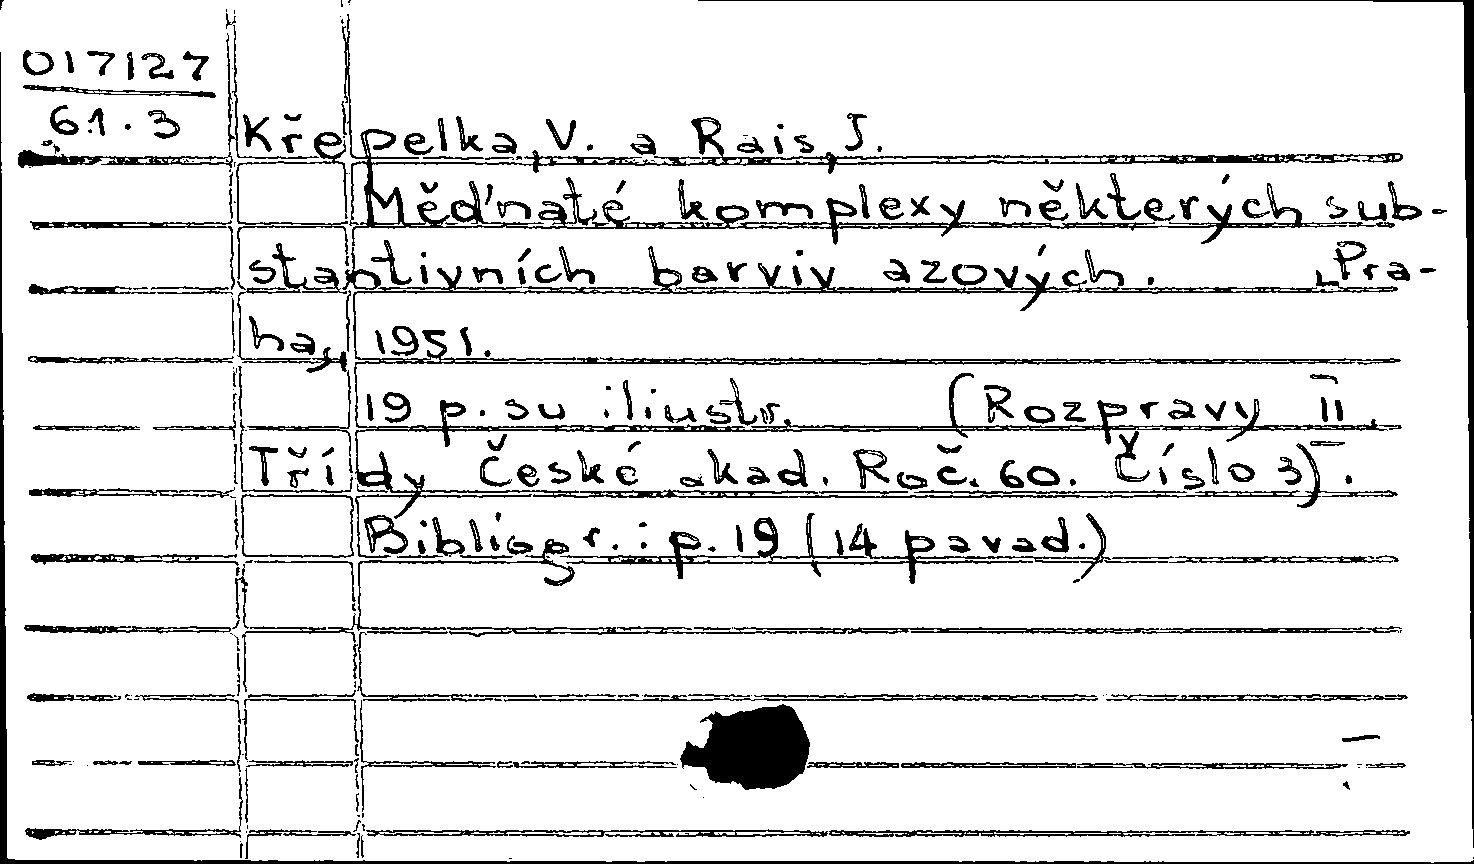 017127
61.3
Křepelka, V. a Rais, J.
Měďnaté komplexy některých sub-
stantivních barviv azových. [Pra-
ha], 1951.
19 p. su iliustr. (Rozpravy II.
Třídy České akad. Roč. 60. Číslo 3).
Bibliogr.: p. 19 (14 pavad.)